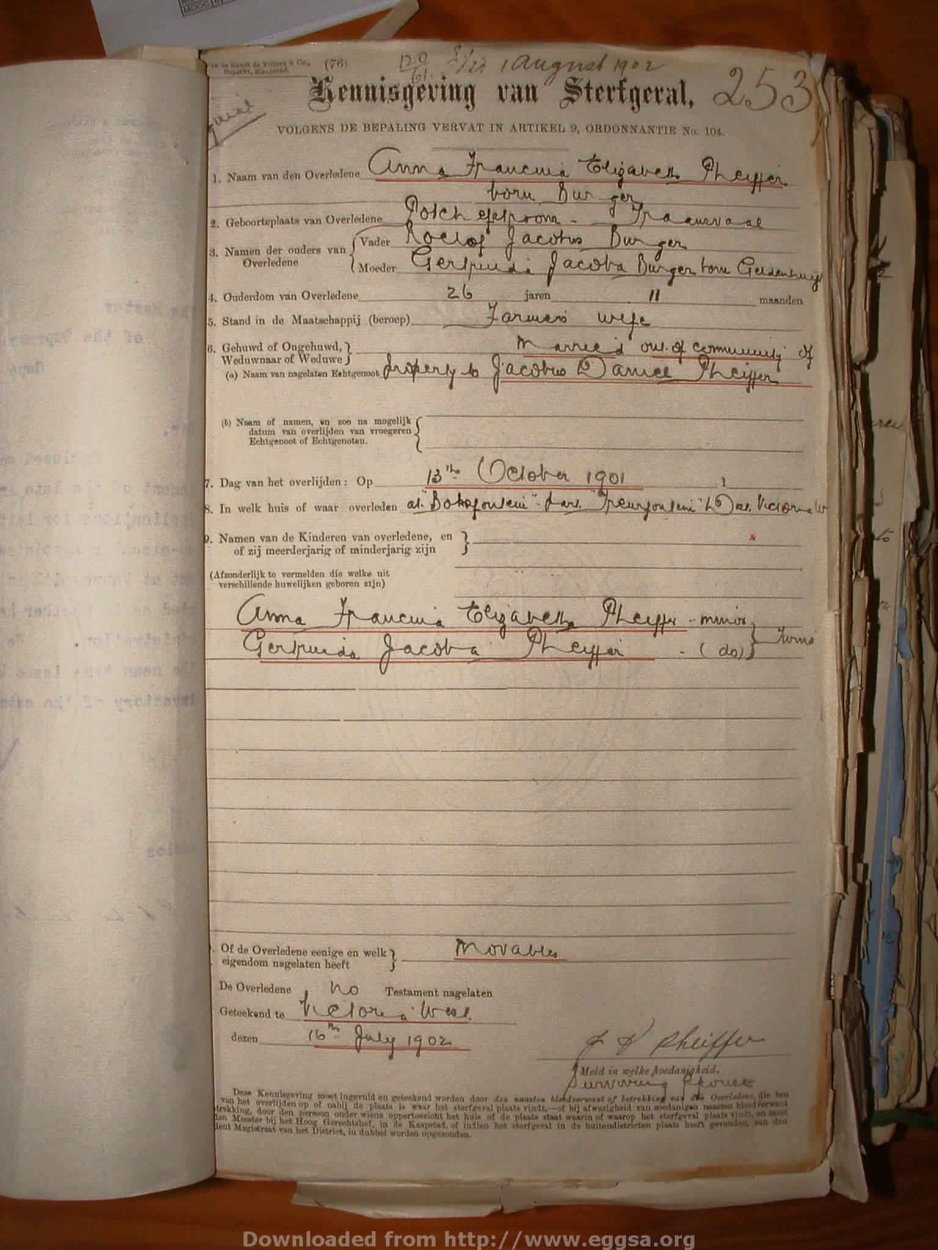 MOOC
Van de Sandt de Villiers & Co.,
Beperkt, Kaapstad.
(76)
120/61. 1 August 1902
253
Kennisgeving van Sterfgeval,
VOLGENS DE BEPALING VERVAT IN ARTIKEL 9, ORDONNANTIE No. 104.
1. Naam van den Overledene Anna Francina Elizabeth Pheiffer
born Burger
2. Geboorteplaats van Overledene Potchefstroom - Transvaal
3. Namen der ouders van Overledene { Vader Roelof Jacobus Burger
Moeder Gertruida Jacoba Burger born Geldenhuijs
4. Ouderdom van Overledene 26 jaren 11 maanden
5. Stand in de Maatschappij (beroep) Farmers wife
6. Gehuwd of Ongehuwd, Weduwnaar of Weduwe } Married out of community of
(a) Naam van nagelaten Echtgenoot property to Jacobus Daniel Pheiffer
(b) Naam of namen, en zoo na mogelijk
datum van overlijden van vroegeren
Echtgenoot of Echtgenoten.
7. Dag van het overlijden: Op 13th October 1901
8. In welk huis of waar overleden at "Bokfontein" Victoria W
9. Namen van de Kinderen van overledene, en
of zij meerderjarig of minderjarig zijn
(Afzonderlijk te vermelden die welke uit
verschillende huwelijken geboren zijn)
Anna Francina Elizabeth Pheiffer - minor
Gertruida Jacoba Pheiffer - (do) } Twins
Of de Overledene eenige en welk
eigendom nagelaten heeft } Movables
De Overledene no Testament nagelaten
Geteekend te Victoria West
dezen 16th July 1902
J D Pheiffer
Meld in welke hoedanigheid.
Surviving Spouse
Deze Kennisgeving moet ingevuld en geteekend worden door den naasten bloedverwant of betrekking van den Overledene, die ten
van het overlijden op of nabij de plaats is waar het sterfgeval plaats vindt,—of bij afwezigheid van zoodanigen naasten bloedverwant
trekking, door den persoon onder wiens oppertoezicht het huis of de plaats staat waarin of waarop het sterfgeval plaats vindt, en moet
den Meester bij het Hoog Gerechtshof, in de Kaapstad, of indien het sterfgeval in de buitendistricten plaats heeft gevonden, aan den
dent Magistraat van het District, in dubbel worden opgezonden.
Downloaded from http://www.eggsa.org